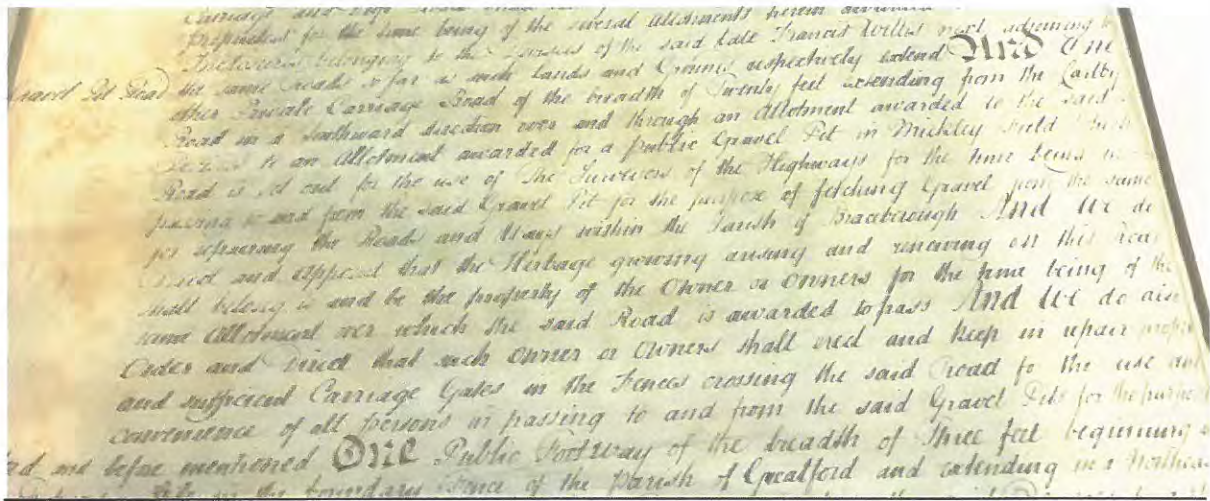 Carriage and
proprietors for the time being of the several Allotments herein awarded
Inclosures belonging to the of the said late Francis Willes next adjoining to
Gravel Pit Road the same roads so far as such Lands and Grounds respectively extend And One
other Private Carriage Road of the breadth of Twenty feet extending from the Carlby
Road in a Southward direction over and through an Allotment awarded to the said
to an Allotment awarded for a public Gravel Pit in Mickley Field which
Road is set out for the use of The Surveyors of the Highways for the time being in
passing to and from the said Gravel Pit for the purpose of fetching Gravel from the same
for repairing the Roads and Ways within the Parish of Braceborough And We do
Direct and Appoint that the Herbage growing arising and renewing on this Road
shall belong to and be the property of the Owner or Owners for the time being of the
same Allotment over which the said Road is awarded to pass And We do also
Order and Direct that such Owner or Owners shall erect and keep in repair proper
and sufficient Carriage Gates in the Fences crossing the said Road for the use and
convenience of all Persons in passing to and from the said Gravel Pits for the purpose
and before mentioned One Public Footway of the breadth of Three feet beginning
in the boundary Fence of the Parish of Greatford and extending in a Northeast